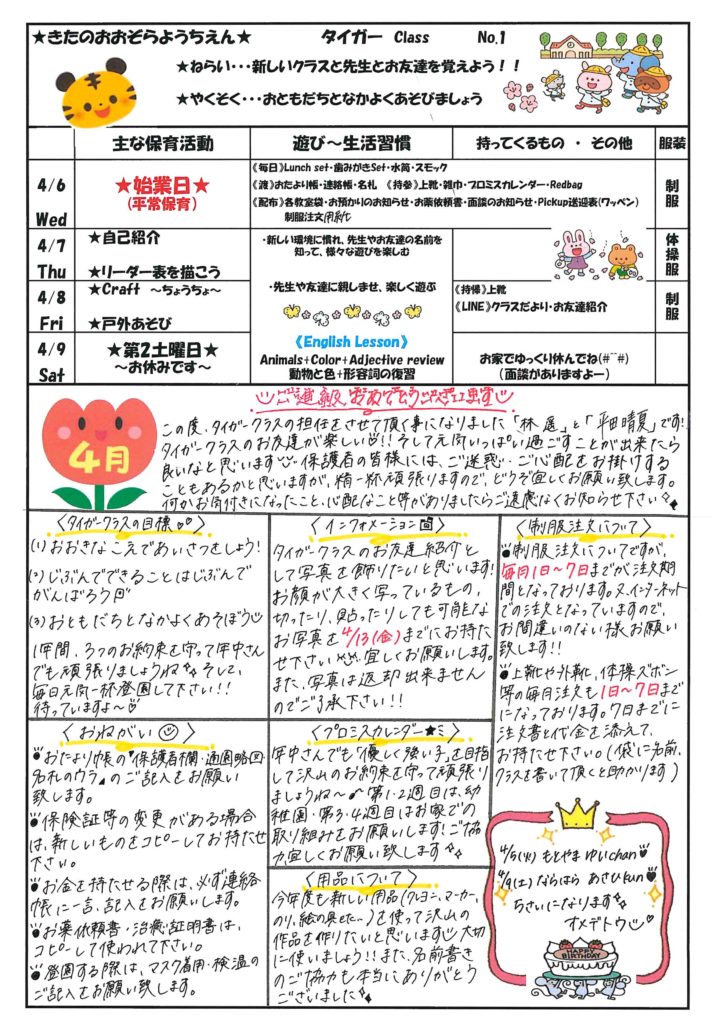 ★きたのおおぞらようちえん★ タイガー Class No.1
★ねらい・・・新しいクラスと先生とお友達を覚えよう!!
★やくそく・・・おともだちとなかよくあそびましょう
主な保育活動 遊び~生活習慣 持ってくるもの・その他 服装
4/6 Wed
★始業日★
(平常保育)
《毎日》Lunch set・歯みがきSet・水筒・スモック
《渡》おたより帳・連絡帳・名札 《持参》上靴・雑巾・プロミスカレンダー・Redbag
《配布》各教室袋・お預かりのお知らせ・お薬依頼書・面談のお知らせ・Pickup送迎表(ワッペン)
制服注文用紙
制服
4/7 Thu
★自己紹介
★リーダー表を描こう
・新しい環境に慣れ、先生やお友達の名前を
知って、様々な遊びを楽しむ
体操服
4/8 Fri
★Craft ~ちょうちょ~
★戸外あそび
・先生や友達に親しませ、楽しく遊ぶ
《持帰》上靴
《LINE》クラスだより・お友達紹介
制服
4/9 Sat
★第2土曜日★
~お休みです~
《English Lesson》
Animals+Color+Adjective review
動物と色+形容詞の復習
お家でゆっくり休んでね(#^^#)
(面談がありますよー)
ご進級おめでとうございます
4月
この度、タイガークラスの担任をさせて頂く事になりました「林 」と「平田晴夏」です!
タイガークラスのお友達が楽しい!!そして元気いっぱい過ごすことが出来たら
良いなと思います 保護者の皆様には、ご迷惑・ご心配をお掛けする
こともあるかと思いますが、精一杯頑張りますので、どうぞ宜しくお願い致します。
何かお気付きになったこと、心配なこと等がありましたらご遠慮なくお知らせ下さい
〈タイガークラスの目標〉
(1)おおきなこえであいさつをしよう!
(2)じぶんでできることはじぶんで
がんばろう
(3)おともだちとなかよくあそぼう
1年間、3つのお約束を守って年中さん
でも頑張りましょうね そして、
毎日元気一杯登園して下さい!!
待っていますよ~♡
〈インフォメーション〉
タイガークラスのお友達紹介と
して写真を飾りたいと思います!
お顔が大きく写っているもの、
切ったり、貼ったりしても可能な
お写真を4/13(金)までにお持た
せ下さい 宜しくお願いします。
また、写真は返却出来ません
のでご了承下さい!!
〈制服注文について〉
制服注文についてですが、
毎月1日~7日までが注文期
間となっております。又、インターネット
での注文となっていますので、
お間違いのない様お願い
致します!!
上靴や外靴、体操ズボン
等の毎月注文も1日~7日まで
になっております。7日までに
注文書と代金を添えて、
お持たせ下さい。(袋に名前、
クラスを書いて頂くと助かります)
〈おねがい〉
おたより帳の"保護者欄・通園略図・
名札のウラ"のご記入をお願い
致します。
保険証等の変更がある場合
は、新しいものをコピーしてお持たせ
下さい。
お金を持たせる際は、必ず連絡
帳に一言、記入をお願いします。
お薬依頼書・治癒証明書は、
コピーして使われて下さい。
登園する際は、マスク着用・検温の
ご記入をお願い致します。
〈プロミスカレンダー★ミ〉
年中さんでも「優しく強い子」を目指
して沢山のお約束を守って頑張り
ましょうね~♪ 第1・2週目は、幼
稚園・第3・4週目はお家での
取り組みをお願いします!ご協
力宜しくお願い致します
〈用品について〉
今年度も新しい用品(クレヨン、マーカー、
のり、絵の具etc…)を使って沢山の
作品を作りたいと思います 大切
に使いましょう!!また、名前書き
のご協力も本当にありがとう
ございました
4/5(火)もとやま ゆいchan
4/9(土)ならはら あさひkun
5さいになります
オメデトウ
HAPPY BIRTHDAY